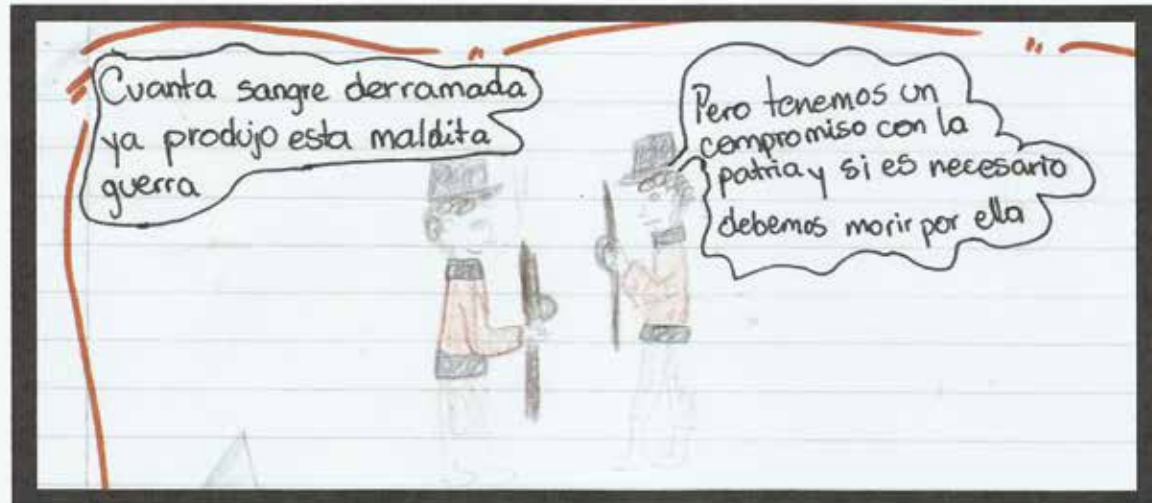 Cuanta sangre derramada
ya produjo esta maldita
guerra
Pero tenemos un
compromiso con la
patria y si es necesario
debemos morir por ella